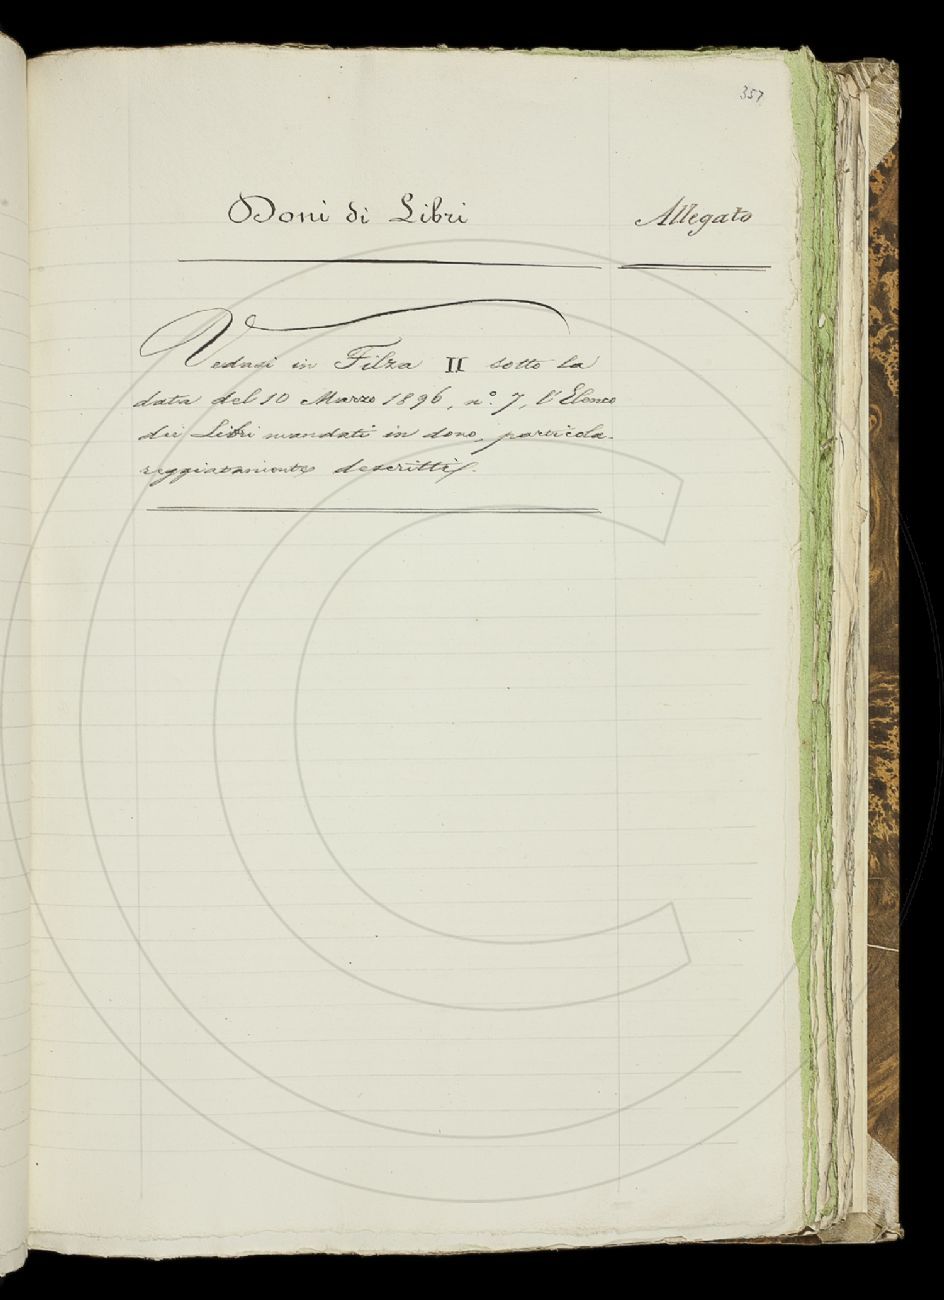 357
Doni di Libri
Allegato
Vedasi in Filza II sotto la
data del 10 Marzo 1896, n.° 7, l'Elenco
dei Libri mandati in dono, particola-
reggiatamente descritti.